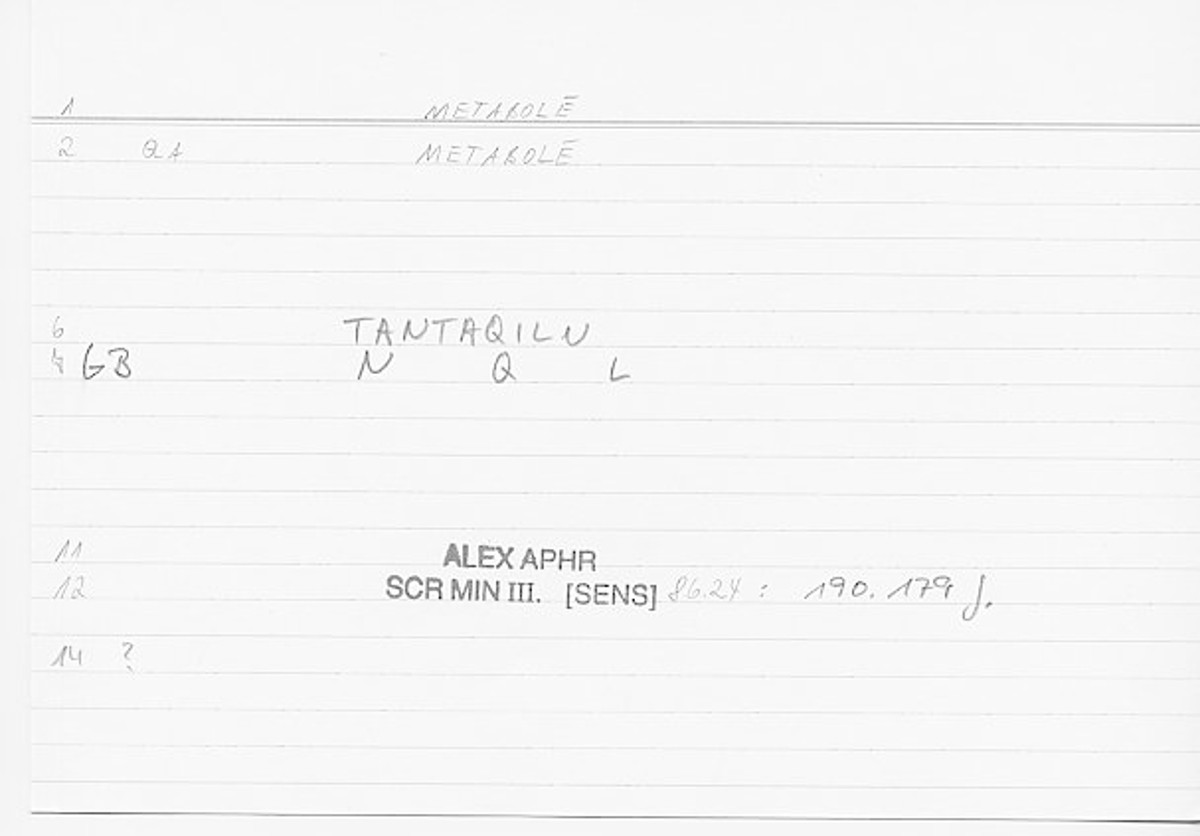 1 METABOLĒ
2 QA METABOLĒ
6 TANTAQILU
GB N Q L
11 ALEX APHR
12 SCR MIN III. [SENS] 86.24 : 190.179 J.
14 ?